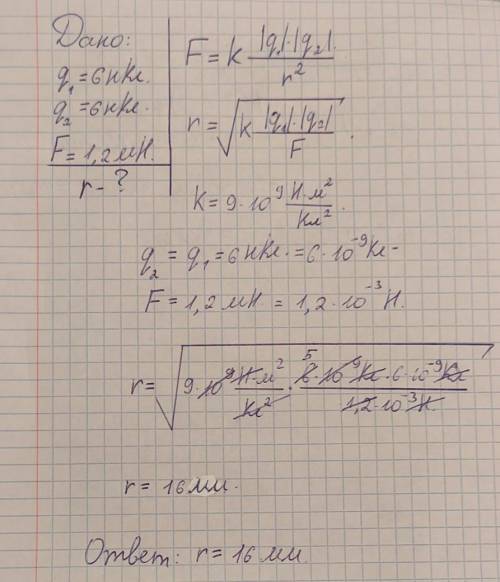 Дано:
q₁ = 6 нКл.
q₂ = 6 нКл.
F = 1,2 мН.
r - ?
F = k |q₁|·|q₂| / r²
r = √(k |q₁|·|q₂| / F).
k = 9·10⁹ Н·м² / Кл².
q₂ = q₁ = 6 нКл. = 6·10⁻⁹ Кл -
F = 1,2 мН = 1,2·10⁻³ Н.
r = √(9·10⁹ Н·м² / Кл² · 5 6·10⁻⁹ Кл · 6·10⁻⁹ Кл / 1,2·10⁻³ Н)
r = 16 мм.
Ответ: r = 16 мм.